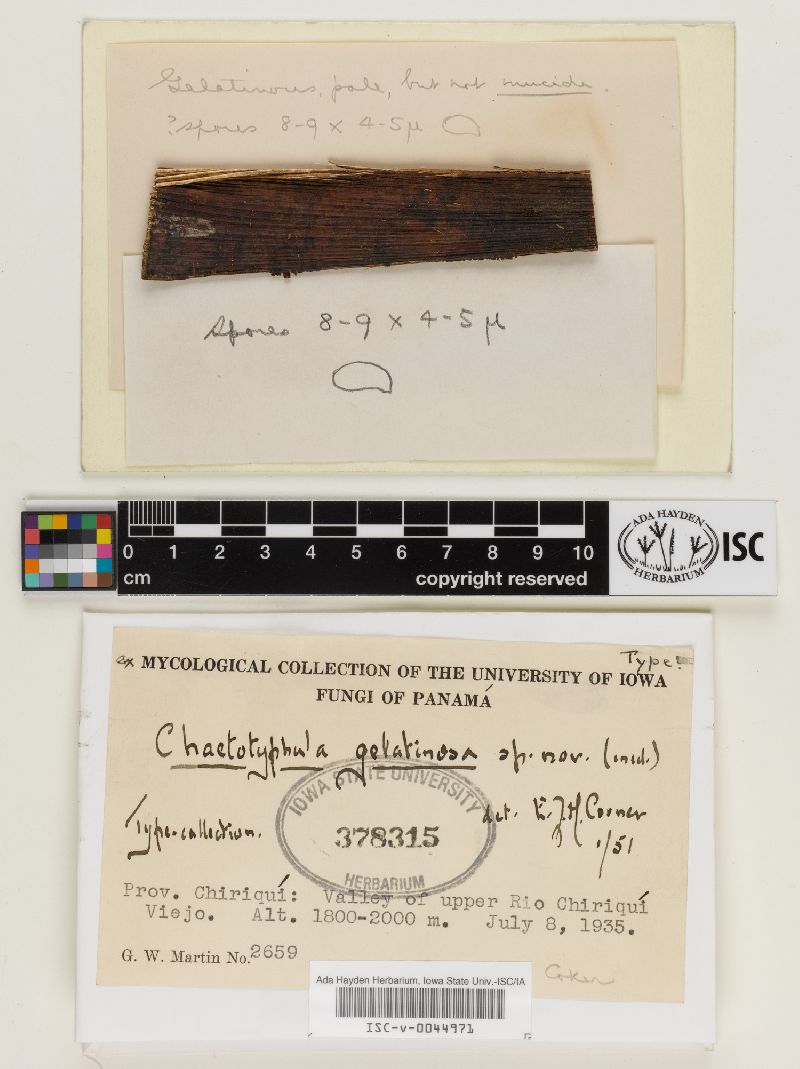 Gelatinous, pale, but not mucida.
?spores 8-9 x 4-5µ
Spores 8-9 x 4-5 µ
0 1 2 3 4 5 6 7 8 9 10
cm
copyright reserved
ADA HAYDEN
HERBARIUM
ISC
Type.
ex MYCOLOGICAL COLLECTION OF THE UNIVERSITY OF IOWA
FUNGI OF PANAMÁ
Chaetotyphula gelatinosa sp. nov. (ined.)
IOWA STATE UNIVERSITY
378315
HERBARIUM
Type-collection.
det. E.J.H. Corner
1/51
Prov. Chiriquí: Valley of upper Rio Chiriquí
Viejo. Alt. 1800-2000 m. July 8, 1935.
G. W. Martin No. 2659
Coker
Ada Hayden Herbarium, Iowa State Univ.-ISC/IA
ISC-v-0044971